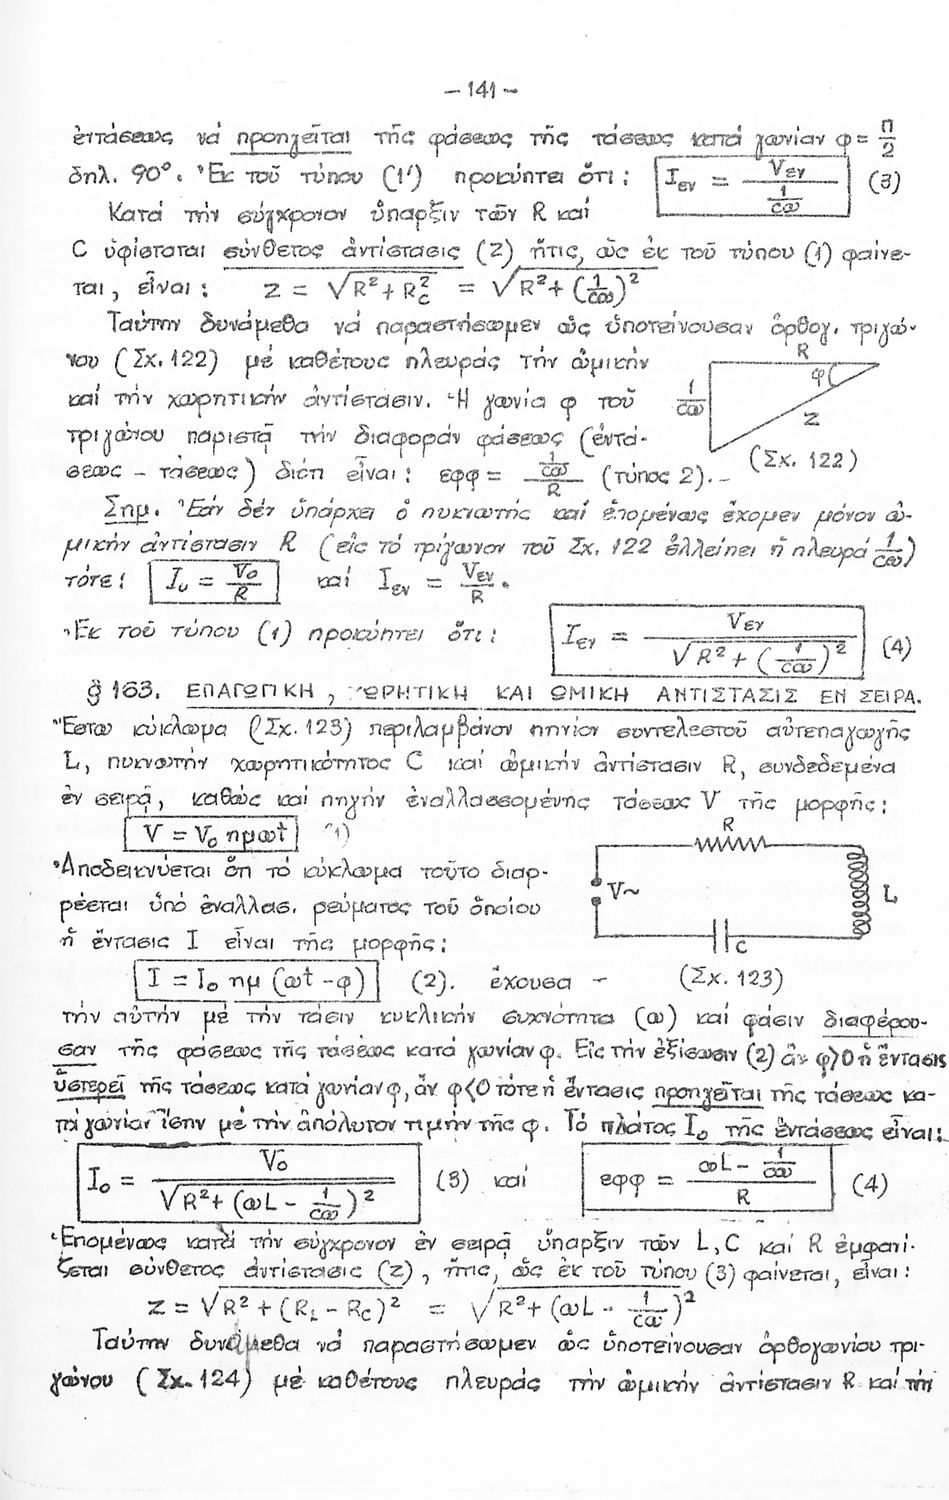 - 141 -
ἐντάσεως νά προηγεῖται τῆς φάσεως τῆς τάσεως κατά γωνίαν φ = π/2
δηλ. 90°. Ἐκ τοῦ τύπου (1') προκύπτει ὅτι: Iεν = Vεν / (1/Cω) (3)
Κατά τήν σύγχρονον ὕπαρξιν τῶν R καί
C ὑφίσταται σύνθετος ἀντίστασις (Z) ἥτις, ὡς ἐκ τοῦ τύπου (1) φαίνε-
ται, εἶναι: Z = √(R² + R_C²) = √(R² + (1/Cω)²)
Ταύτην δυνάμεθα νά παραστήσωμεν ὡς ὑποτείνουσαν ὀρθογ. τριγώ-
νου (Σχ. 122) μέ καθέτους πλευράς τήν ὠμικήν
καί τήν χωρητικήν ἀντίστασιν. Ἡ γωνία φ τοῦ
τριγώνου παριστᾷ τήν διαφοράν φάσεως (ἐντά-
σεως - τάσεως) διότι εἶναι: εφφ = (1/Cω) / R (τύπος 2).-
R
φ
1/Cω
Z
(Σχ. 122)
Σημ. Ἐάν δέν ὑπάρχει ὁ πυκνωτής καί ἑπομένως ἔχομεν μόνον ὠ-
μικήν ἀντίστασιν R (εἰς τό τρίγωνον τοῦ Σχ. 122 ἐλλείπει ἡ πλευρά 1/Cω)
τότε: I₀ = V₀/R καί Iεν = Vεν/R.
Ἐκ τοῦ τύπου (1) προκύπτει ὅτι: Iεν = Vεν / √(R² + (1/Cω)²) (4)
§ 163. ΕΠΑΓΩΓΙΚΗ, ΧΩΡΗΤΙΚΗ ΚΑΙ ΩΜΙΚΗ ΑΝΤΙΣΤΑΣΙΣ ΕΝ ΣΕΙΡΑ.
Ἔστω κύκλωμα (Σχ. 123) περιλαμβάνον πηνίον συντελεστοῦ αὐτεπαγωγῆς
L, πυκνωτήν χωρητικότητος C καί ὠμικήν ἀντίστασιν R, συνδεδεμένα
ἐν σειρᾷ, καθώς καί πηγήν ἐναλλασσομένης τάσεως V τῆς μορφῆς:
V = V₀ ημωt (1)
Ἀποδεικνύεται ὅτι τό κύκλωμα τοῦτο διαρ-
ρέεται ὑπό ἐναλλασ. ρεύματος τοῦ ὁποίου
ἡ ἔντασις I εἶναι τῆς μορφῆς:
R
V~
L
C
(Σχ. 123)
I = I₀ ημ (ωt - φ) (2). ἔχουσα -
τήν αὐτήν μέ τήν τάσιν κυκλικήν συχνότητα (ω) καί φάσιν διαφέρου-
σαν τῆς φάσεως τῆς τάσεως κατά γωνίαν φ. Εἰς τήν ἐξίσωσιν (2) ἄν φ>0 ἡ ἔντασις
ὑστερεῖ τῆς τάσεως κατά γωνίαν φ, ἄν φ<0 τότε ἡ ἔντασις προηγεῖται τῆς τάσεως κα-
τά γωνίαν ἴσην μέ τήν ἀπόλυτον τιμήν τῆς φ. Τό πλάτος I₀ τῆς ἐντάσεως εἶναι:
I₀ = V₀ / √(R² + (ωL - 1/Cω)²) (3) καί εφφ = (ωL - 1/Cω) / R (4)
Ἑπομένως κατά τήν σύγχρονον ἐν σειρᾷ ὕπαρξιν τῶν L, C καί R ἐμφανί-
ζεται σύνθετος ἀντίστασις (Z), ἥτις, ὡς ἐκ τοῦ τύπου (3) φαίνεται, εἶναι:
Z = √(R² + (R_L - R_C)²) = √(R² + (ωL - 1/Cω)²)
Ταύτην δυνάμεθα νά παραστήσωμεν ὡς ὑποτείνουσαν ὀρθογωνίου τρι-
γώνου (Σχ. 124) μέ καθέτους πλευράς τήν ὠμικήν ἀντίστασιν R καί τήν